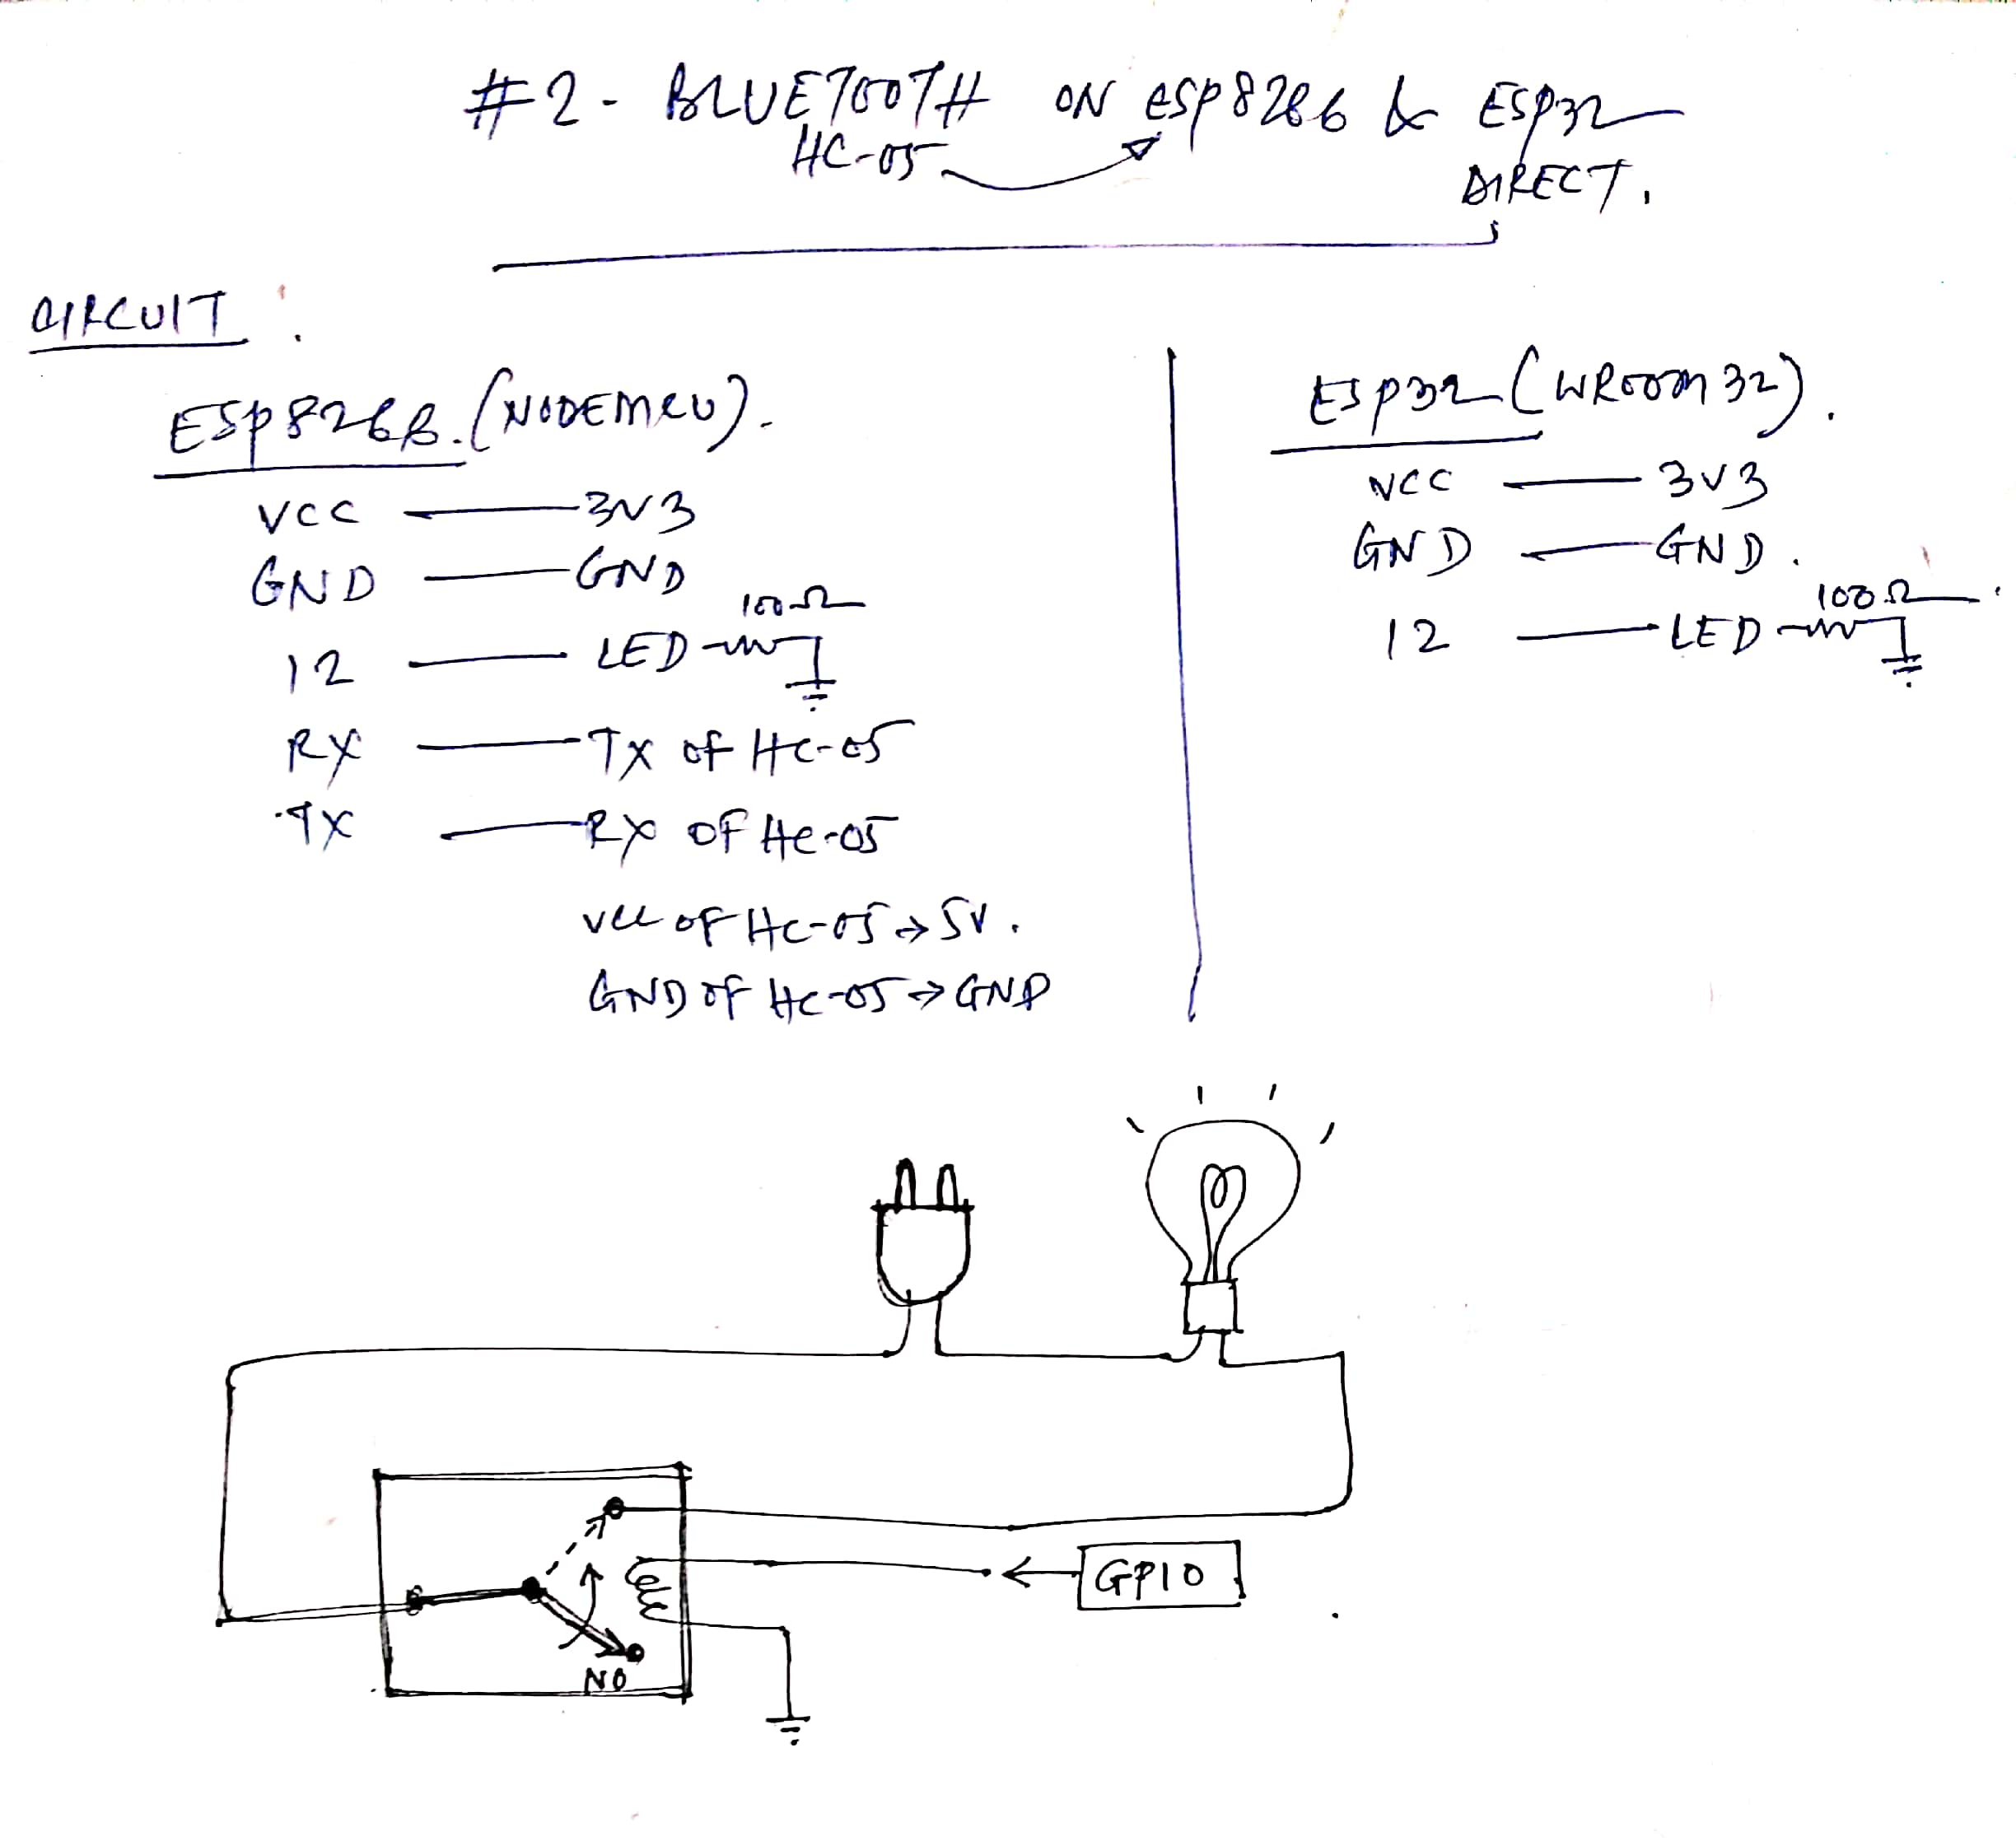 #2 - BLUETOOTH ON ESP8266 & ESP32
HC-05
DIRECT.
CIRCUIT :
ESP8266. (NODEMCU).
VCC — 3V3
GND — GND
100Ω
12 — LED
RX — TX OF HC-05
TX — RX OF HC-05
VCC OF HC-05 → 5V.
GND OF HC-05 → GND
ESP32 (WROOM 32).
VCC — 3V3
GND — GND.
100Ω
12 — LED
GPIO
NO